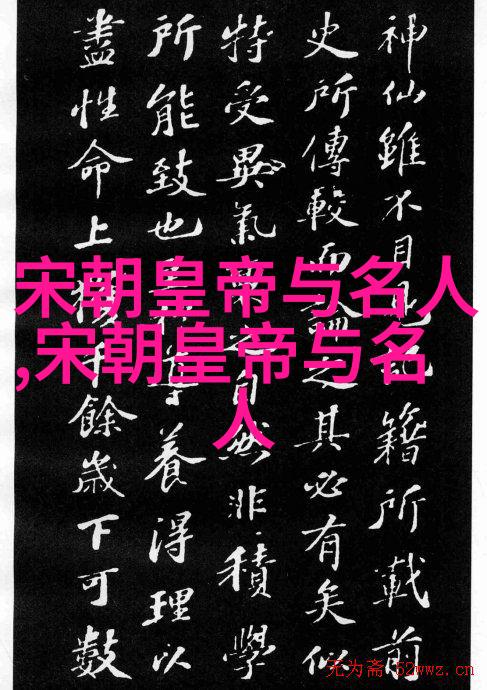 神仙雖不目籍所載前
史所傳較而之其必有矣似
特受異氣之自然非積學
所能致也導養得理以
盡性命上獲千餘歲下可數
宋朝皇帝与名人
,宋朝皇帝与名
人
无为斋 52wwz.cn